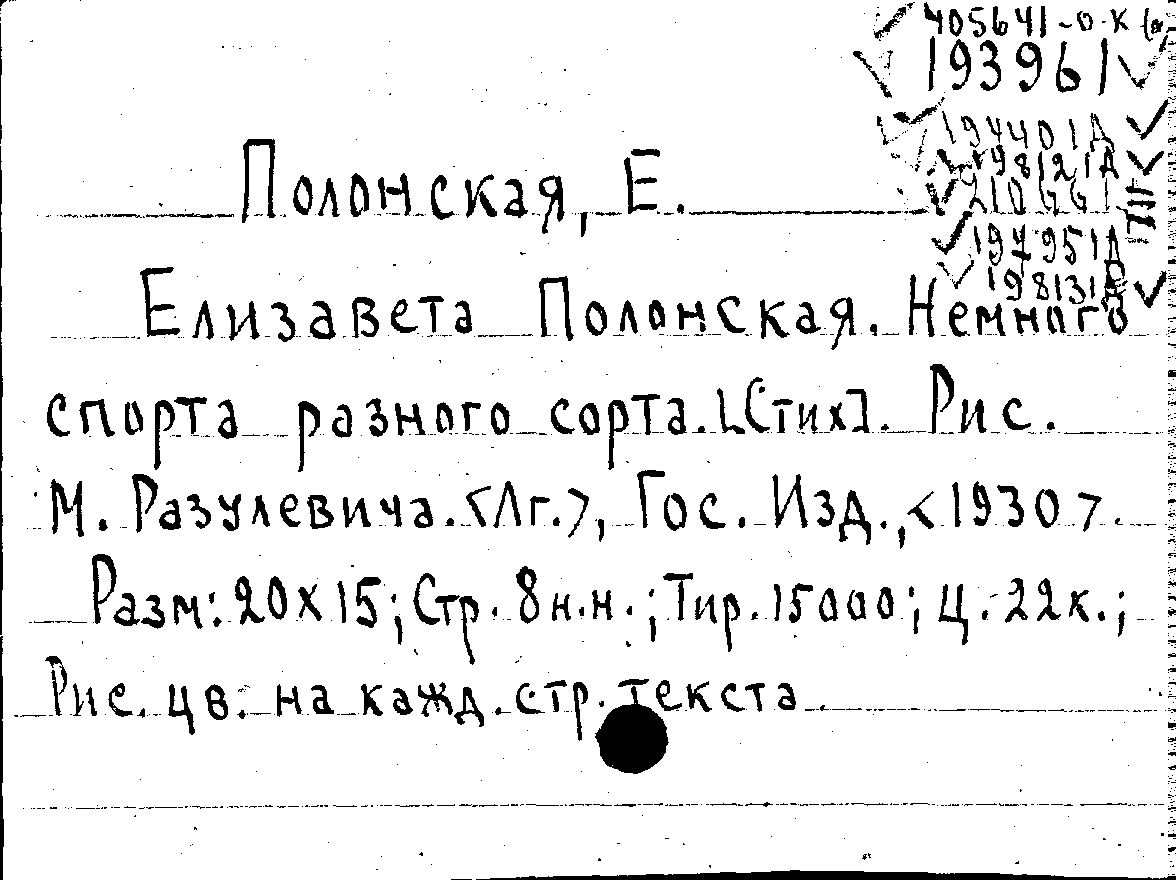 405641-о.к
193961
194401Д
198121Д
210661
197951Д
198131Д
Полонская, Е.
Елизавета Полонская. Немного
спорта разного сорта.[Стих]. Рис.
М. Разулевича.<Лг.>, Гос. Изд.,<1930>.
Разм: 20х15; Стр. 8 н.н.; Тир. 15000; Ц. 22к.;
Рис. цв. на кажд. стр. текста.